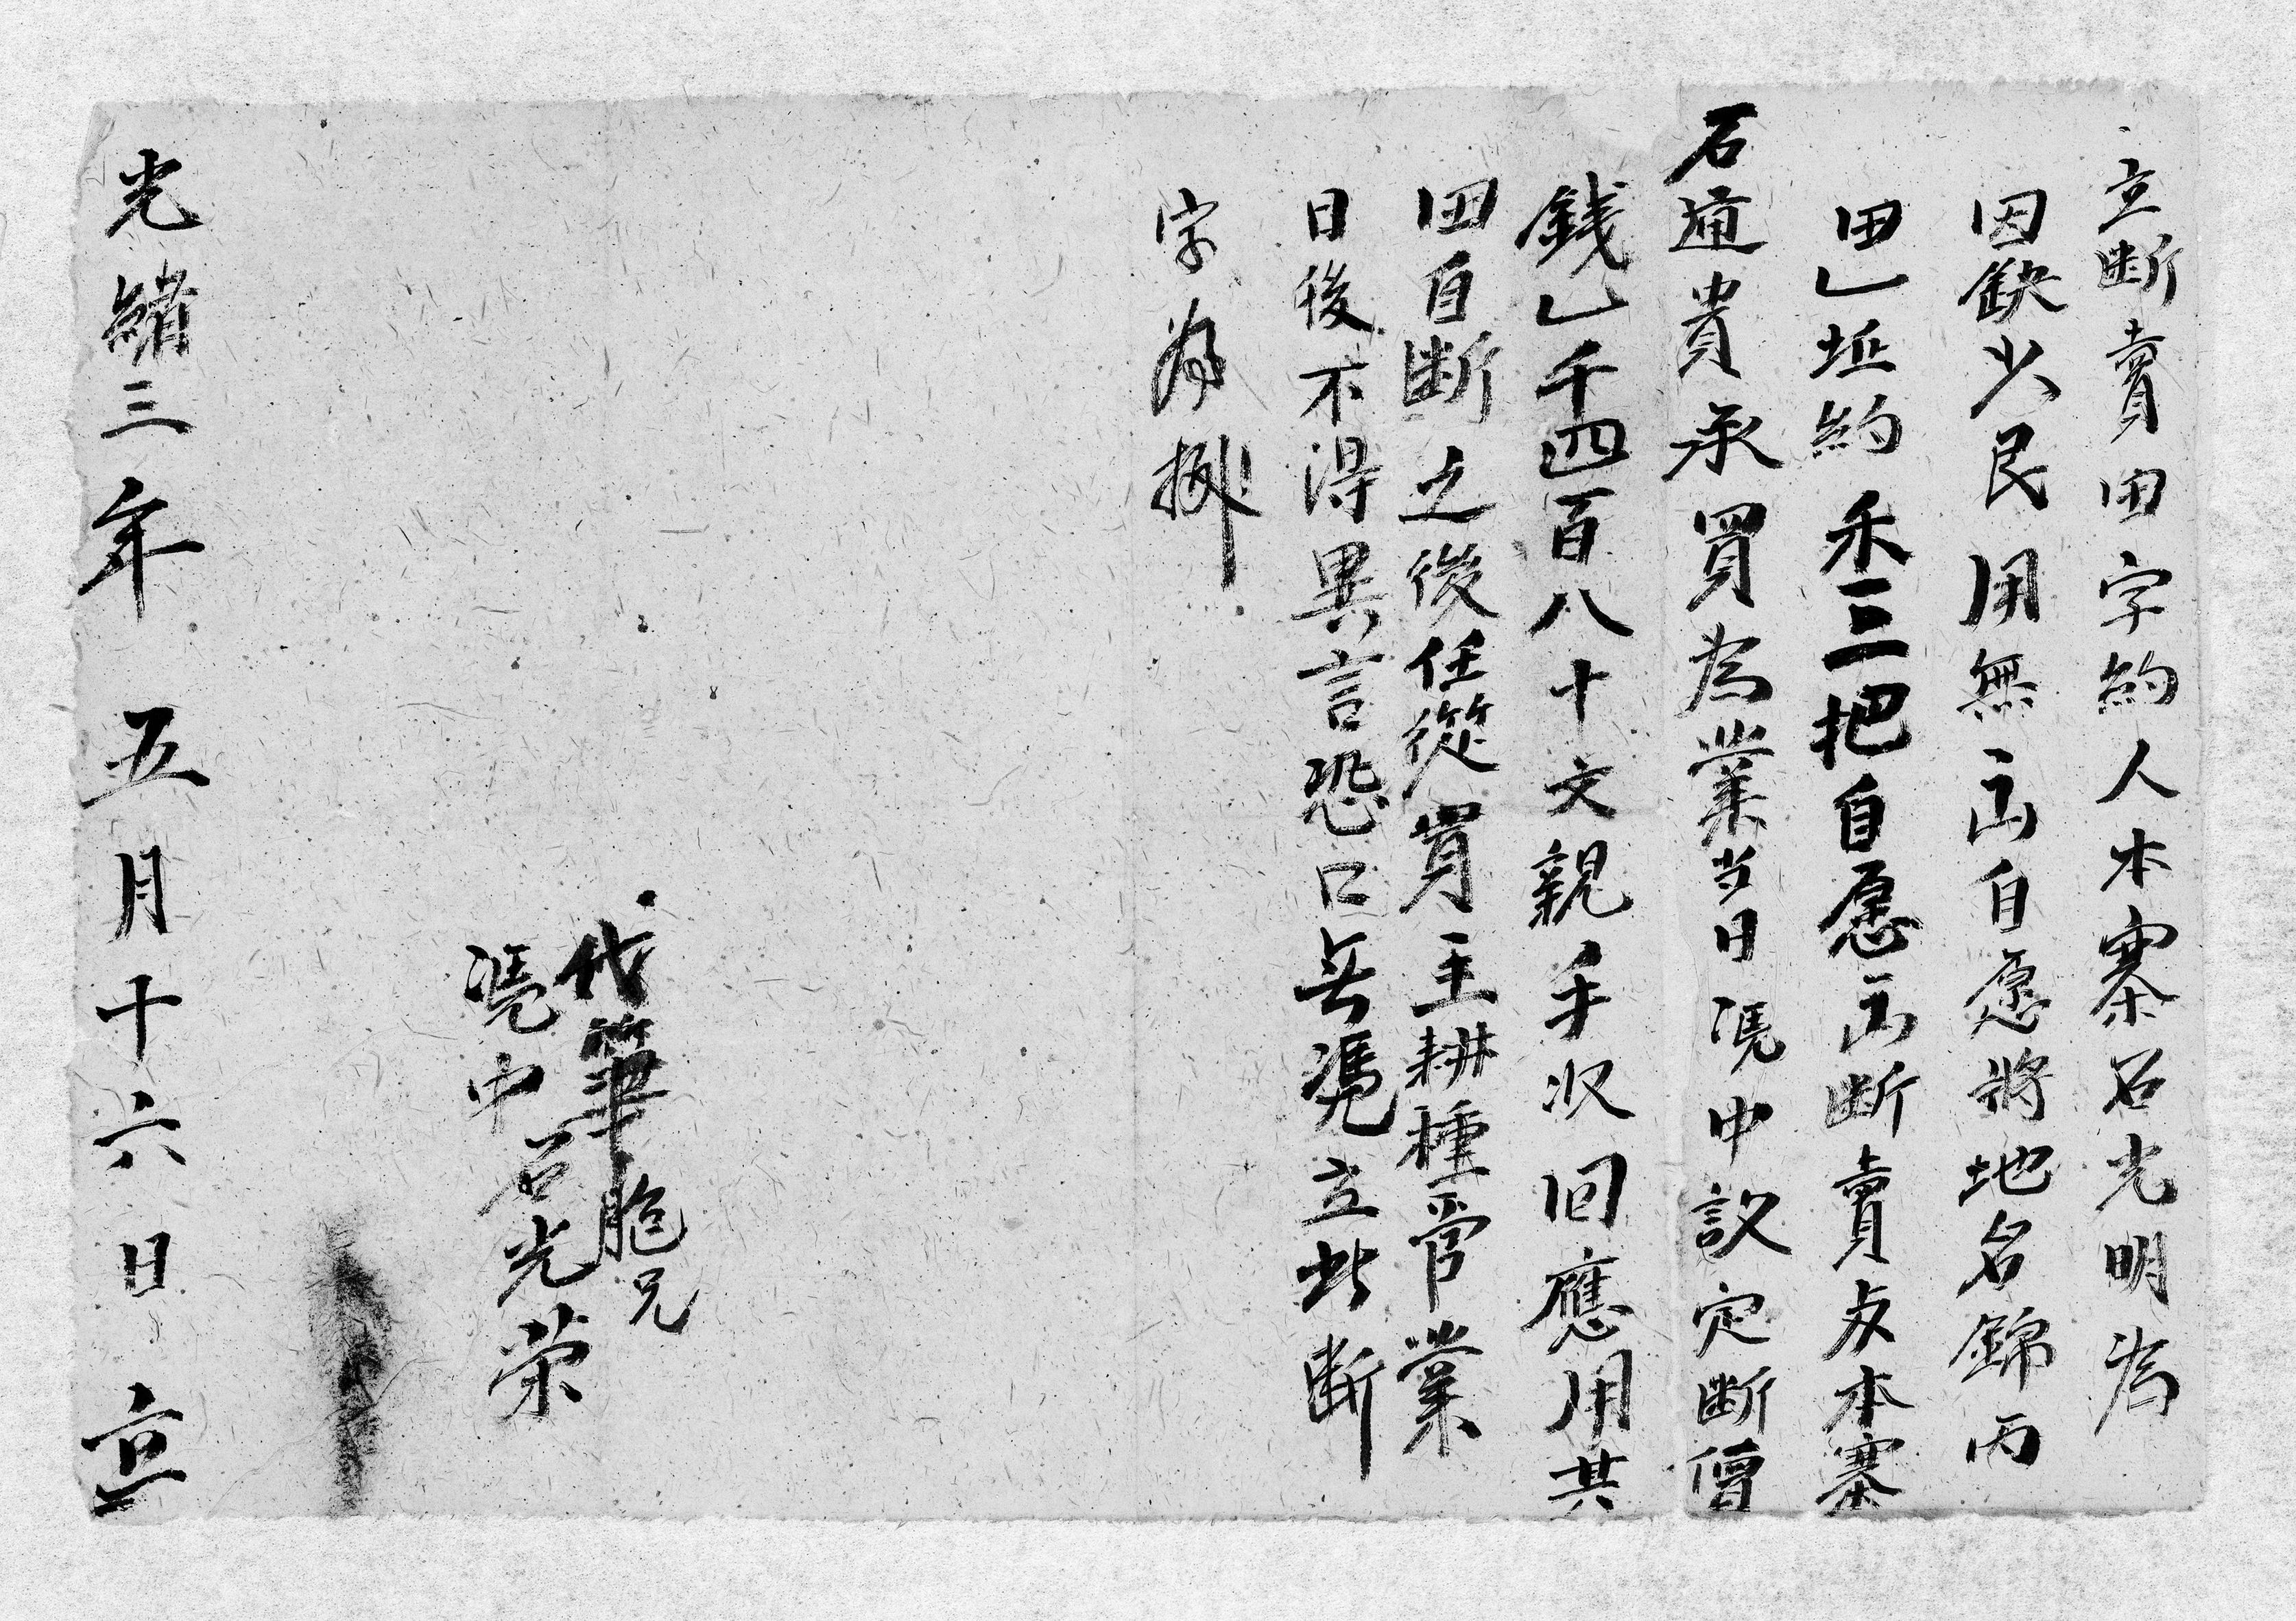 立断賣田字約人本寨石光明為
因缺少艮用無出自愿將地名錦丙
田乚坵約禾三把自愿出断賣攵本寨
石通貴承買為業当日凴中議定断價
錢乚千四百八十文親手収回應用其
田自断之後任從買主耕種管業
日後不得異言恐口無凴立此断
字為拠
代筆胞兄
凴中石光荣
光緒三年五月十六日立